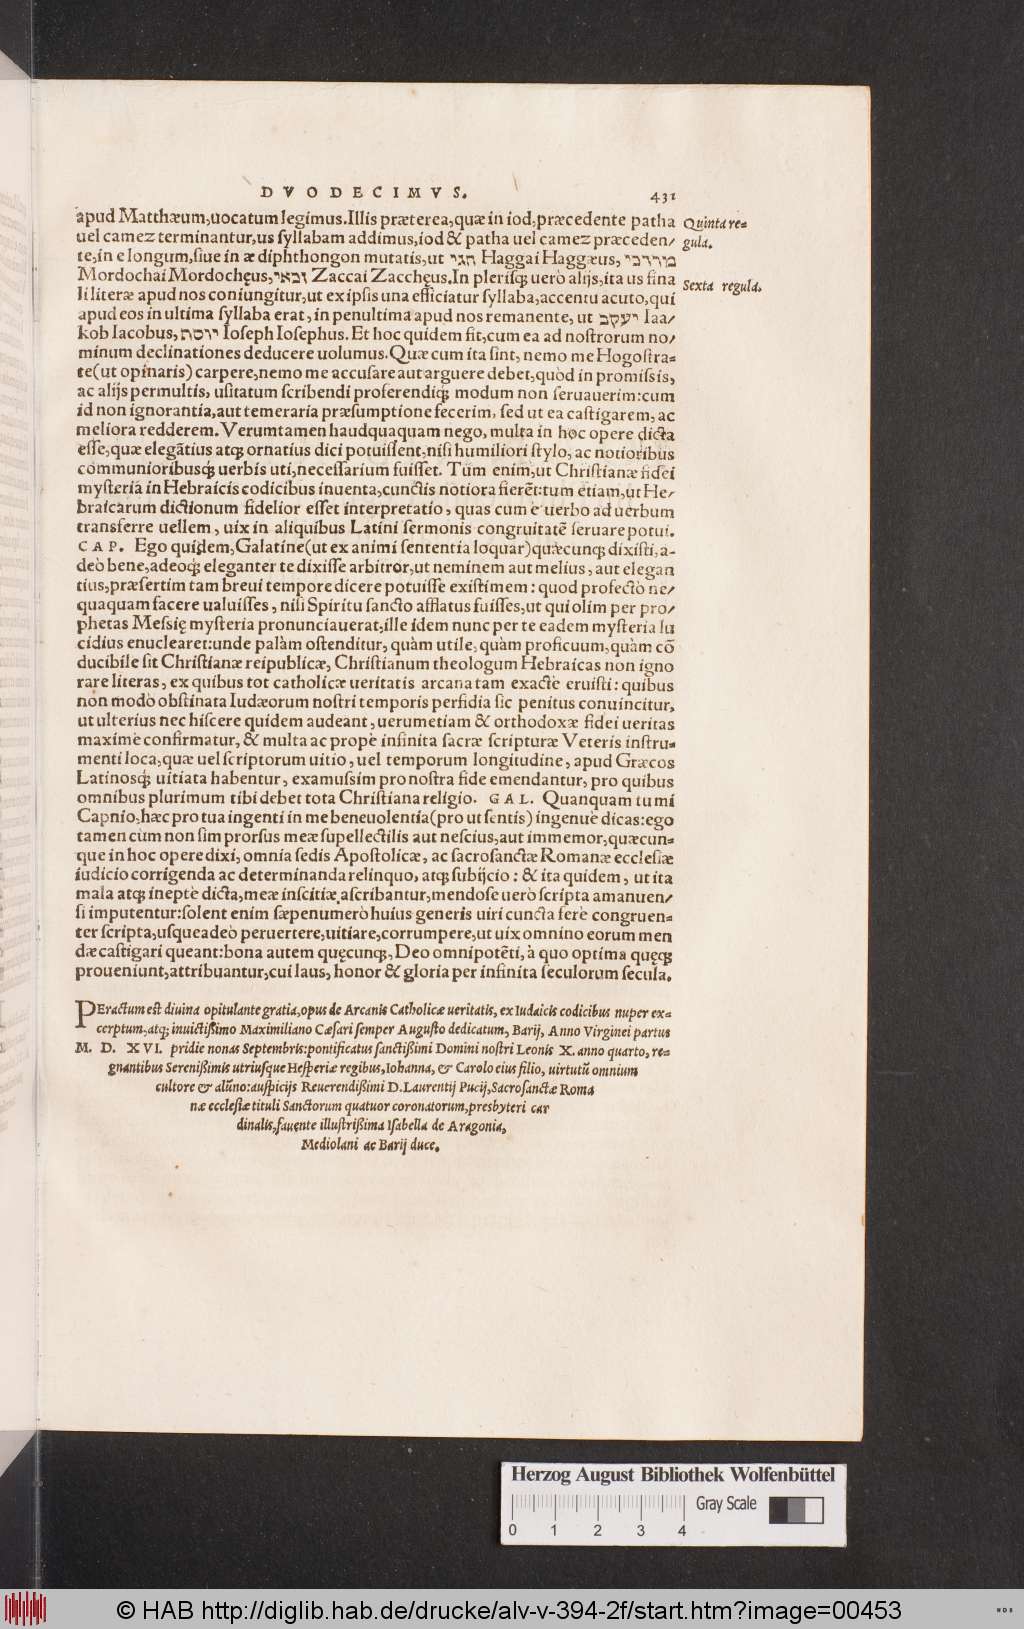 DVODECIMVS. 431
apud Matthæum, uocatum legimus. Illis præterea, quæ in iod, præcedente patha
uel camez terminantur, us syllabam addimus, iod & patha uel camez præceden/
te, in e longum, siue in æ diphthongon mutatis, ut חגי Haggai Haggæus, מורדכי
Mordochai Mordochęus, זכאי Zaccai Zacchęus. In plerisq; uerò alijs, ita us fina
li literæ apud nos coniungitur, ut ex ipsis una efficiatur syllaba, accentu acuto, qui
apud eos in ultima syllaba erat, in penultima apud nos remanente, ut יעקב Iaa/
kob Iacobus, יוסף Ioseph Iosephus. Et hoc quidem fit, cum ea ad nostrorum no/
minum declinationes deducere uolumus. Quæ cum ita sint, nemo me Hogostra=
te (ut opinaris) carpere, nemo me accusare aut arguere debet, quòd in promissis,
ac alijs permultis, usitatum scribendi proferendiq; modum non seruauerim: cum
id non ignorantia, aut temeraria præsumptione fecerim, sed ut ea castigarem, ac
meliora redderem. Verumtamen haudquaquam nego, multa in hoc opere dicta
esse, quæ elegãtius atq; ornatius dici potuissent, nisi humiliori stylo, ac notioribus
communioribusq; uerbis uti, necessarium fuisset. Tùm enim, ut Christianæ fidei
mysteria in Hebraicis codicibus inuenta, cunctis notiora fierẽt: tum etiam, ut He/
braicarum dictionum fidelior esset interpretatio, quas cum è uerbo ad uerbum
transferre uellem, uix in aliquibus Latini sermonis congruitatẽ seruare potui.
CAP. Ego quidem, Galatine (ut ex animi sententia loquar) quæcunq; dixisti, a-
deò bene, adeoq; eleganter te dixisse arbitror, ut neminem aut melius, aut elegan
tius, præsertim tam breui tempore dicere potuisse existimem: quod profectò ne/
quaquam facere ualuisses, nisi Spiritu sancto afflatus fuisses, ut qui olim per pro/
phetas Messię mysteria pronunciauerat, ille idem nunc per te eadem mysteria lu
cidius enuclearet: unde palàm ostenditur, quàm utile, quàm proficuum, quàm cõ
ducibile sit Christianæ reipublicæ, Christianum theologum Hebraicas non igno
rare literas, ex quibus tot catholicæ ueritatis arcana tam exactè eruisti: quibus
non modò obstinata Iudæorum nostri temporis perfidia sic penitus conuincitur,
ut ulterius nec hiscere quidem audeant, uerumetiam & orthodoxæ fidei ueritas
maximè confirmatur, & multa ac propè infinita sacræ scripturæ Veteris instru=
menti loca, quæ uel scriptorum uitio, uel temporum longitudine, apud Græcos
Latinosq; uitiata habentur, examussim pro nostra fide emendantur, pro quibus
omnibus plurimum tibi debet tota Christiana religio. GAL. Quanquam tu mi
Capnio, hæc pro tua ingenti in me beneuolentia (pro ut sentis) ingenuè dicas: ego
tamen cùm non sim prorsus meæ supellectilis aut nescius, aut immemor, quæcun=
que in hoc opere dixi, omnia sedis Apostolicæ, ac sacrosanctæ Romanæ ecclesiæ
iudicio corrigenda ac determinanda relinquo, atq; subijcio: & ita quidem, ut ita
mala atq; ineptè dicta, meæ inscitiæ ascribantur, mendose uerò scripta amanuen/
si imputentur: solent enim sæpenumerò huius generis uiri cuncta ferè congruen=
ter scripta, usqueadeò peruertere, uitiare, corrumpere, ut uix omnino eorum men
dæ castigari queant: bona autem quęcunq;, Deo omnipotẽti, à quo optima quęq;
proueniunt, attribuantur, cui laus, honor & gloria per infinita seculorum secula.
Quinta re=
gula.
Sexta regula.
PEractum est diuina opitulante gratia, opus de Arcanis Catholicæ ueritatis, ex Iudaicis codicibus nuper ex=
cerptum, atq; inuictissimo Maximiliano Cæsari semper Augusto dedicatum, Barij, Anno Virginei partus
M. D. XVI. pridie nonas Septembris: pontificatus sanctissimi Domini nostri Leonis X. anno quarto, re=
gnantibus Serenissimis utriusque Hesperiæ regibus, Iohanna, & Carolo eius filio, uirtutũ omnium
cultore & alũno: auspicijs Reuerendissimi D. Laurentij Pucij, Sacrosanctæ Roma
næ ecclesiæ tituli Sanctorum quatuor coronatorum, presbyteri car
dinalis, fauente illustrissima Isabella de Aragonia,
Mediolani ac Barij duce.
Herzog August Bibliothek Wolfenbüttel
0 1 2 3 4 Gray Scale
© HAB http://diglib.hab.de/drucke/alv-v-394-2f/start.htm?image=00453